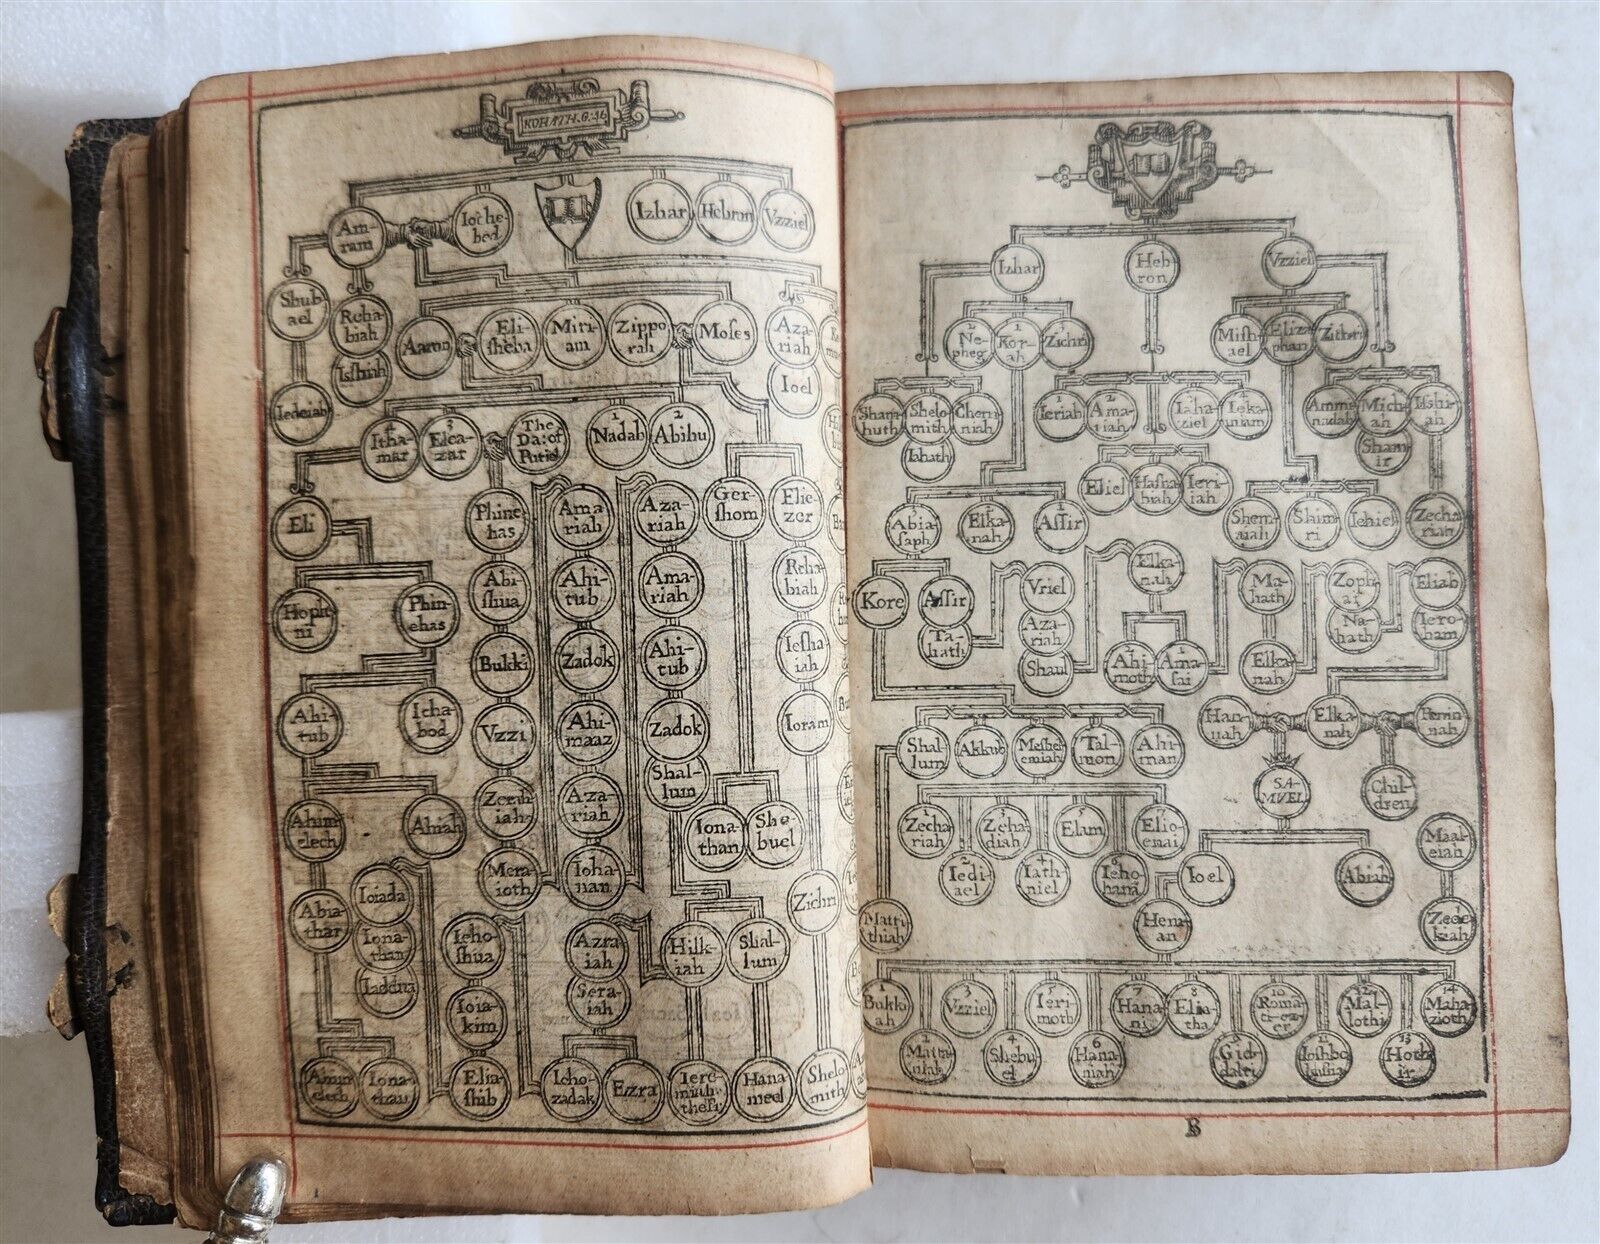 KOHATH. G. 46
Am-
ram
Ioche-
bed
Izhar
Hebron
Vzziel
Shub-
ael
Reha-
biah
Isshiah
Iedeiah
Aaron
Eli-
sheba
Miri-
am
Zippo-
rah
Moses
Aza-
riah
Ioel
4
Itha-
mar
3
Elea-
zar
The
Da: of
Putiel
1
Nadab
2
Abihu
Eli
Phine-
has
Ama-
riah
Aza-
riah
Ger-
shom
Elie-
zer
Hoph-
ni
Phin-
ehas
Abi-
shua
Ahi-
tub
Ama-
riah
Reha-
biah
Bukki
Zadok
Ahi-
tub
Iesha-
iah
Ahi-
tub
Icha-
bod
Vzzi
Ahi-
maaz
Zadok
Ioram
Ahim-
elech
Ahiah
Zerah-
iah
Aza-
riah
Shal-
lum
Iona-
than
She-
buel
Mera-
ioth
Ioha-
nan
Zichri
Abia-
thar
Ioiada
Iona-
than
Iaddua
Ieho-
shua
Azra-
iah
Hilk-
iah
Shal-
lum
Ioia-
kim
Sera-
iah
Iona-
than
Elia-
shib
Ieho-
zadak
Ezra
Hana-
meel
Shelo-
mith
Izhar
Heb-
ron
Vzziel
2
Ne-
pheg
1
Kor-
ah
3
Zichri
Mish-
ael
Eliza-
phan
Zithri
Sham-
huth
Shelo-
mith
Chenn-
niah
Iahath
1
Ieriah
2
Ama-
riah
3
Iaha-
ziel
4
Ieka-
miam
Ammi-
nadab
Mich-
ah
Isshi-
ah
Sham-
ir
Eliel
Hasha-
biah
Ieri-
iah
Abia-
saph
Elka-
nah
Assir
Shem-
aiah
Shim-
ri
Iehiel
Zecha-
riah
Kore
Assir
Ta-
hath
Vriel
Aza-
riah
Shaul
Elka-
nah
Ahi-
moth
Ama-
sai
Ma-
hath
Elka-
nah
Zoph-
ai
Na-
hath
Eliab
Iero-
ham
Shal-
lum
Akkub
Meshel-
emiah
Tal-
mon
Ahi-
man
Han-
nah
Elka-
nah
Penin-
nah
SA-
MVEL
Chil-
dren
1
Zecha-
riah
3
Zeba-
diah
5
Elam
7
Elio-
enai
2
Iedi-
ael
4
Iath-
niel
6
Ieho-
hanā
Ioel
Abiah
Maas-
eiah
Matti-
thiah
Hem-
an
Zede-
kiah
1
Bukki-
ah
3
Vzziel
5
Ieri-
moth
7
Hana-
ni
8
Elia-
tha
10
Roma-
ti-ezer
12
Mal-
lothi
14
Maha-
zioth
2
Matta-
niah
4
Shebu-
el
6
Hana-
niah
9
Gid-
dalti
11
Ioshbe-
kasha
13
Hoth-
ir
B